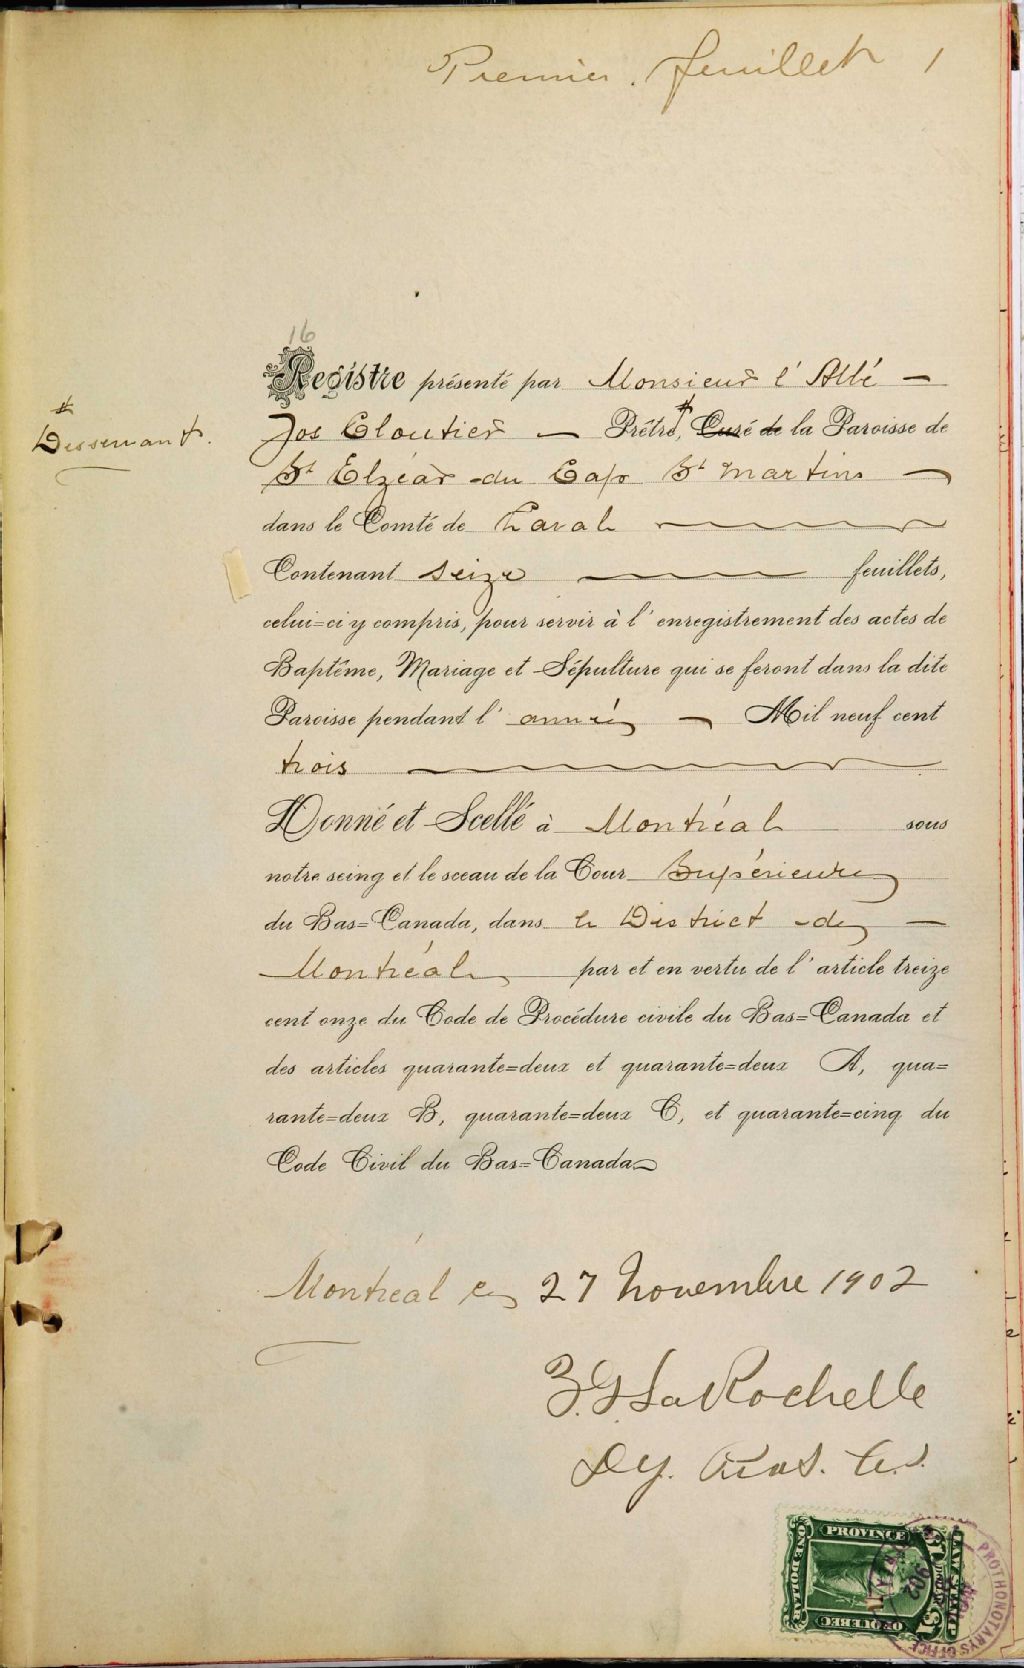 Premier feuillet 1
16
Registre présenté par Monsieur l'Abbé
Jos Cloutier Prêtre, # Curé de la Paroisse de
# Desservant.
St Elzéar du Cap St Martin
dans le Comté de Laval
Contenant seize feuillets,
celui=ci y compris, pour servir à l'enregistrement des actes de
Baptême, Mariage et Sépulture qui se feront dans la dite
Paroisse pendant l'année Mil neuf cent
trois
Donné et Scellé à Montréal sous
notre seing et le sceau de la Cour Supérieure
du Bas=Canada, dans le District de
Montréal par et en vertu de l'article treize
cent onze du Code de Procédure civile du Bas=Canada et
des articles quarante=deux et quarante=deux A, qua=
rante=deux B, quarante=deux C, et quarante=cinq du
Code Civil du Bas=Canada
Montréal ce 27 Novembre 1902
Z. G. LaRochelle
Dy. C.S.
PROVINCE
QUEBEC
ONE DOLLAR
LAW STAMP
PROTHONOTARY'S OFFICE